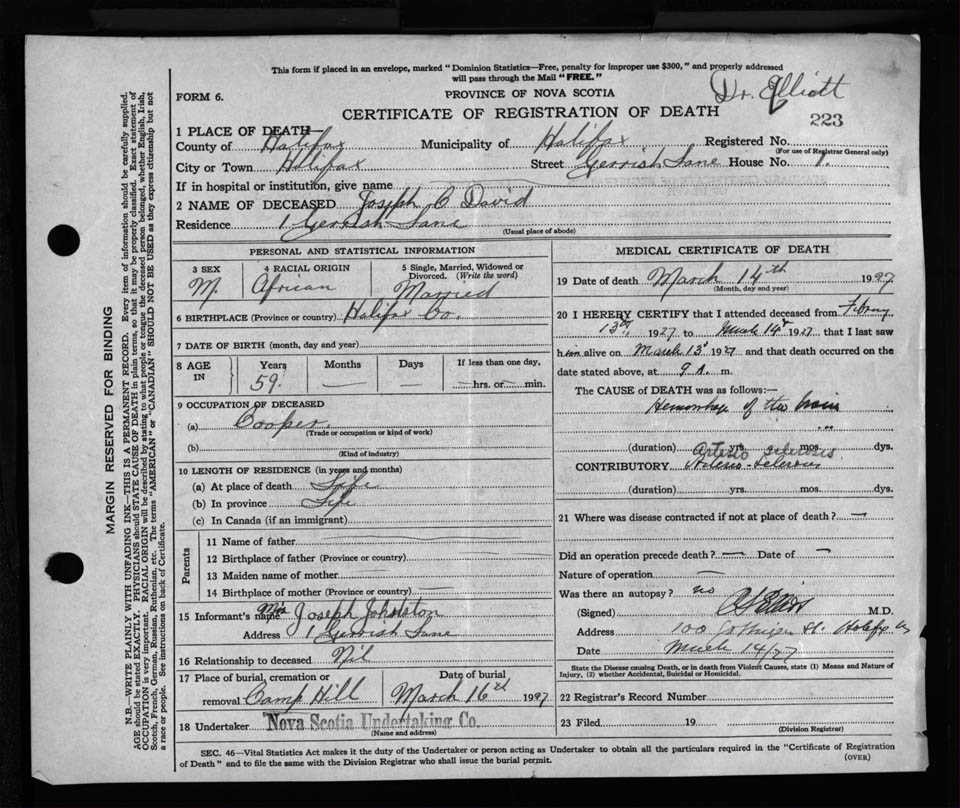 This form if placed in an envelope, marked "Dominion Statistics—Free, penalty for improper use $300," and properly addressed
will pass through the Mail "FREE."
Dr. Elliott
FORM 6.
PROVINCE OF NOVA SCOTIA
CERTIFICATE OF REGISTRATION OF DEATH
223
1 PLACE OF DEATH—
County of Halifax Municipality of Halifax Registered No.
(For use of Registrar General only)
City or Town Halifax Street Gerrish Lane House No. 1.
If in hospital or institution, give name
2 NAME OF DECEASED Joseph C David
Residence 1 Gerrish Lane
(Usual place of abode)
PERSONAL AND STATISTICAL INFORMATION
3 SEX
M.
4 RACIAL ORIGIN
African
5 Single, Married, Widowed or
Divorced. (Write the word)
Married
6 BIRTHPLACE (Province or country) Halifax Co.
7 DATE OF BIRTH (month, day and year)
8 AGE
IN
Years
59.
Months
—
Days
—
If less than one day,
— hrs. or — min.
9 OCCUPATION OF DECEASED
(a) Cooper
(Trade or occupation or kind of work)
(b)
(Kind of industry)
10 LENGTH OF RESIDENCE (in years and months)
(a) At place of death Life
(b) In province Life
(c) In Canada (if an immigrant)
Parents
11 Name of father
12 Birthplace of father (Province or country)
13 Maiden name of mother
14 Birthplace of mother (Province or country)
15 Informant's name Mrs Joseph Johnston
Address 1 Gerrish Lane
16 Relationship to deceased Nil
17 Place of burial, cremation or
removal Camp Hill
Date of burial
March 16th 1927
18 Undertaker Nova Scotia Undertaking Co.
(Name and address)
MEDICAL CERTIFICATE OF DEATH
19 Date of death March 14th 1927
(Month, day and year)
20 I HEREBY CERTIFY that I attended deceased from
13th 1927 to March 14th 1927 that I last saw
him alive on March 13th 1927 and that death occurred on the
date stated above, at 9 A. m.
The CAUSE of DEATH was as follows:—
Hemorrhage of the brain
(duration) yrs. mos. dys.
Arterio sclerosis
CONTRIBUTORY Arterio-sclerosis
(duration) yrs. mos. dys.
21 Where was disease contracted if not at place of death? —
Did an operation precede death? — Date of —
Nature of operation —
Was there an autopsy? no
(Signed) M.D.
Address 100 St.
Date March 14/27
State the Disease causing Death, or in death from Violent Causes, state (1) Means and Nature of
Injury, (2) whether Accidental, Suicidal or Homicidal.
22 Registrar's Record Number
23 Filed 19
(Division Registrar)
SEC. 46—Vital Statistics Act makes it the duty of the Undertaker or person acting as Undertaker to obtain all the particulars required in the "Certificate of Registration
of Death" and to file the same with the Division Registrar who shall issue the burial permit.
(OVER)
MARGIN RESERVED FOR BINDING
N.B.—WRITE PLAINLY WITH UNFADING INK—THIS IS A PERMANENT RECORD. Every item of information should be carefully supplied.
AGE should be stated EXACTLY. PHYSICIANS should STATE CAUSE OF DEATH in plain terms, so that it may be properly classified. Exact statement of
OCCUPATION is very important. RACIAL ORIGIN will be described by stating to what people or tongue the deceased person belonged, whether English, Irish,
Scotch, French, German, Russian, Ruthenian, etc. The terms "AMERICAN" or "CANADIAN" SHOULD NOT BE USED as they express citizenship but not
a race or people. See instructions on back of Certificate.